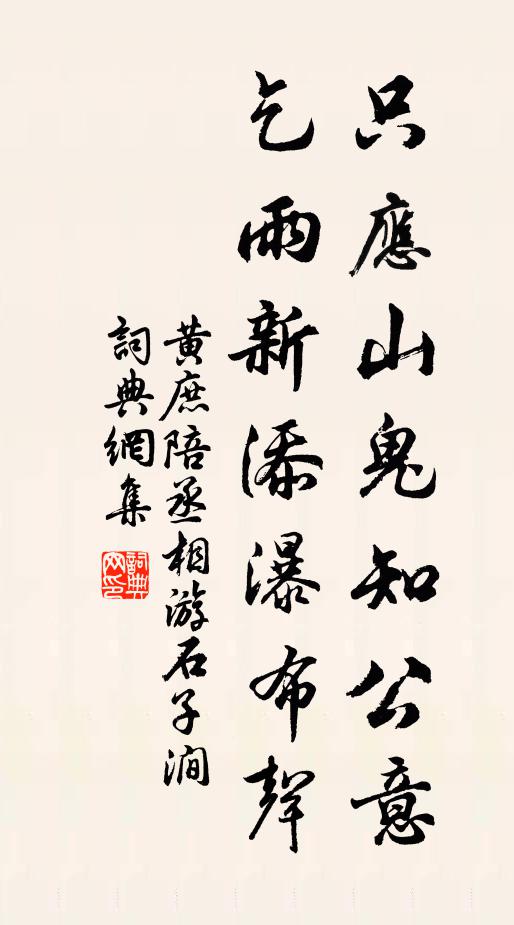 只應山鬼知公意
乞雨新添瀑布聲
黃庶陪丞相游石子澗
詞典網集
詞典網印